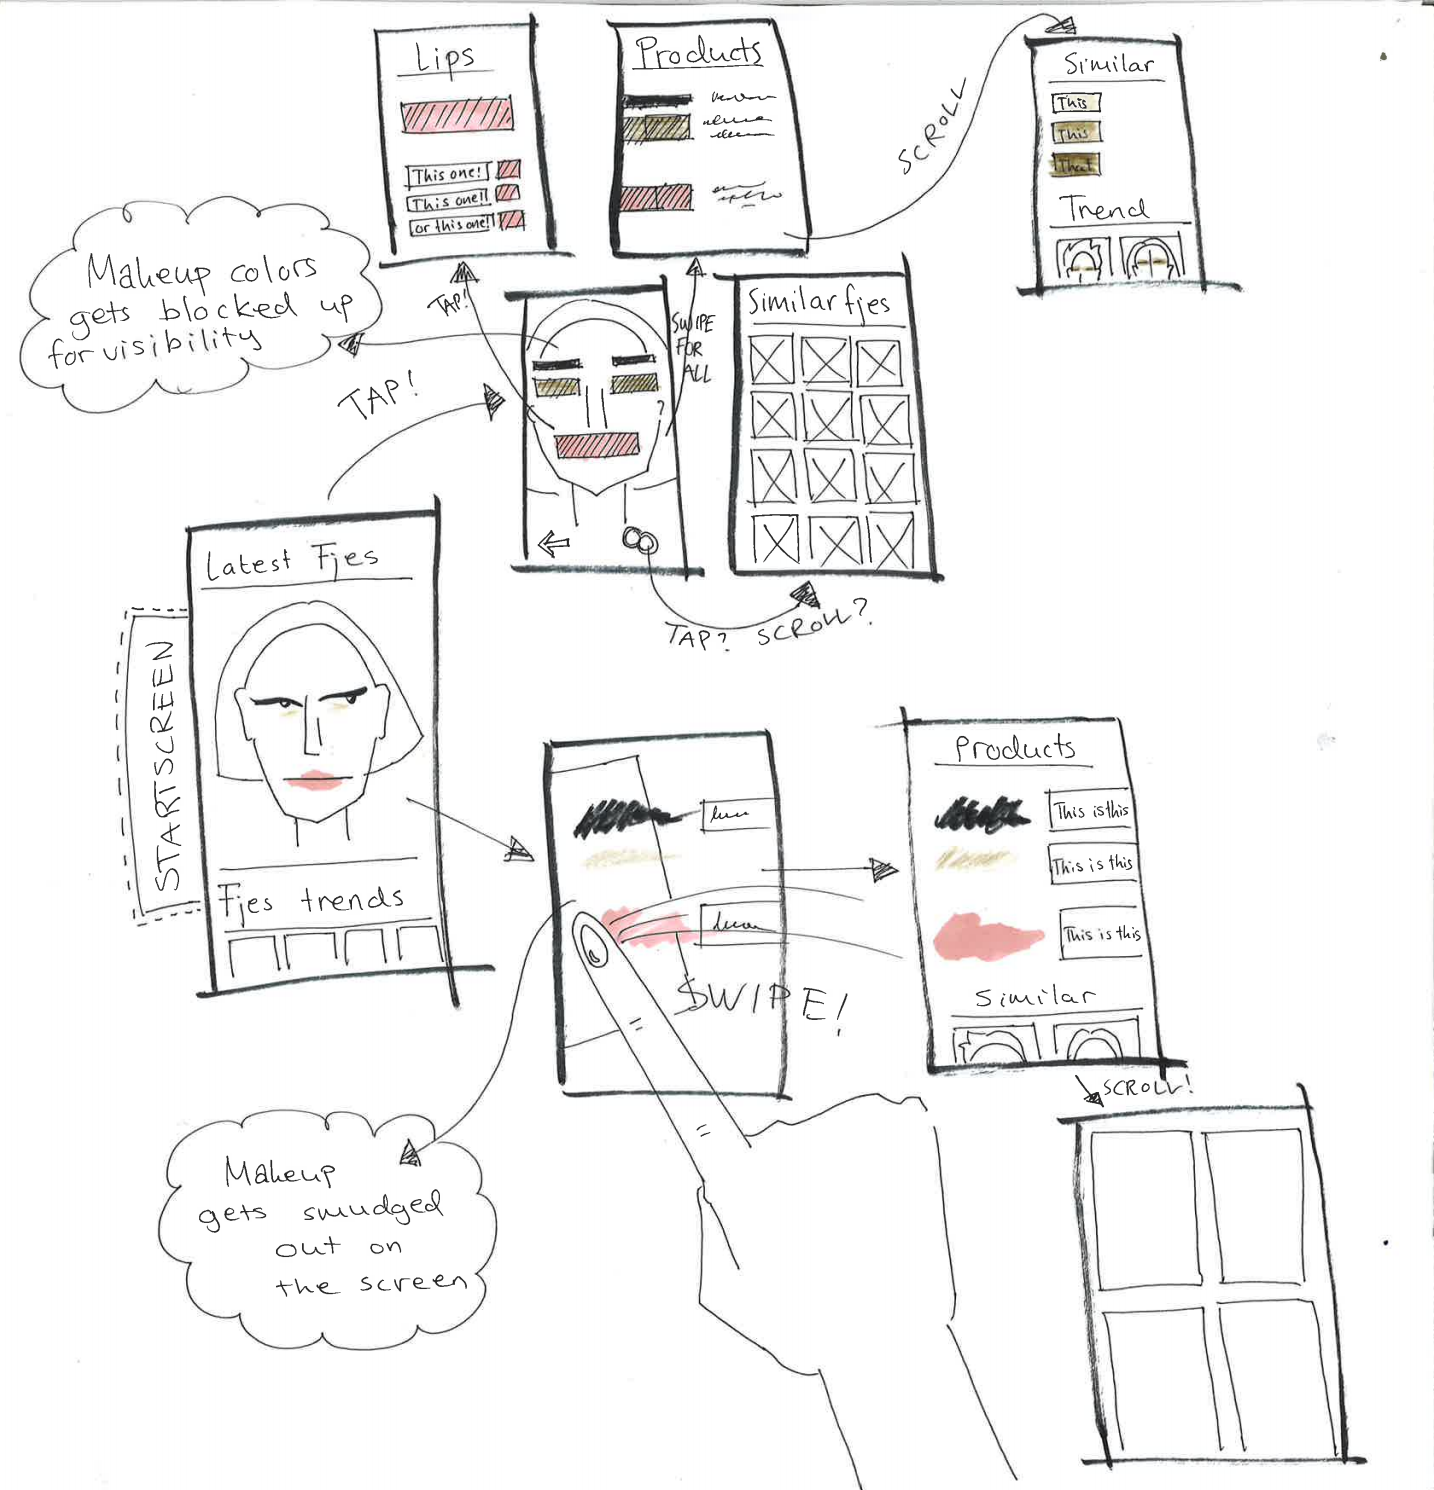 Lips
This one!
This one!!
or this one!!
Products
SCROLL
Similar
This
This
That
Trend
Makeup colors
gets blocked up
for visibility
TAP!
TAP!
SWIPE
FOR
ALL
?
Similar fjes
TAP? SCROLL?
STARTSCREEN
Latest Fjes
Fjes trends
SWIPE!
Products
This is this
This is this
This is this
Similar
SCROLL!
Makeup
gets smudged
out on
the screen